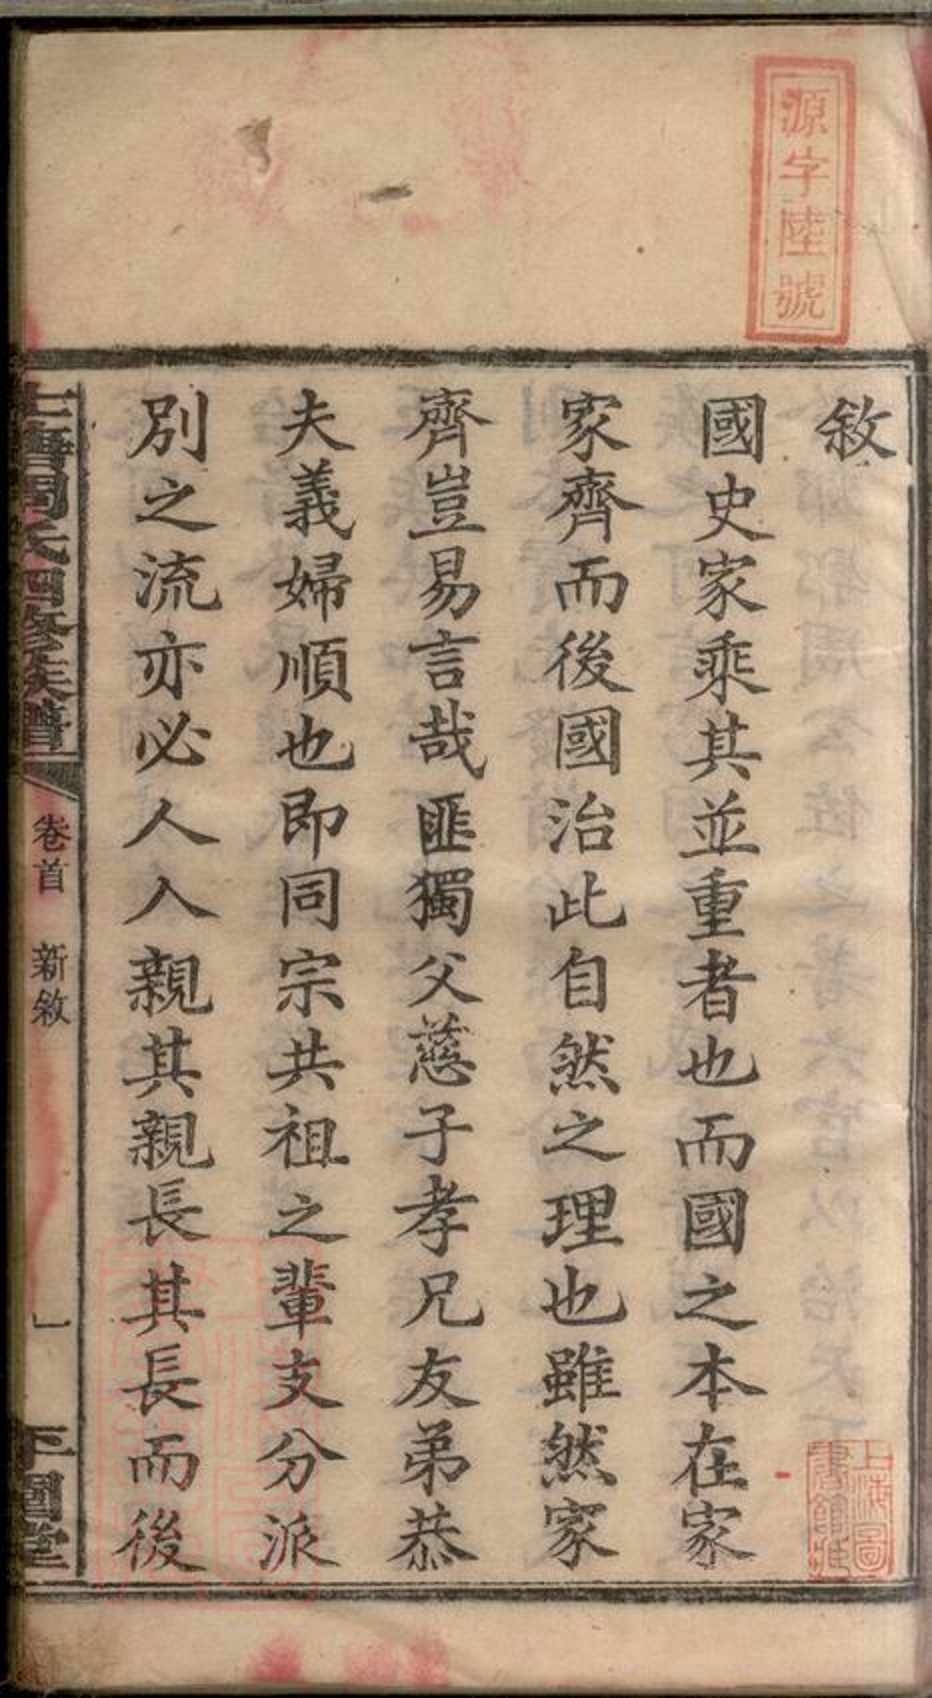 源字陸號
敘
國史家乘其並重者也而國之本在家
家齊而後國治此自然之理也雖然家
齊豈易言哉匪獨父慈子孝兄友弟恭
夫義婦順也即同宗共祖之輩支分派
別之流亦必人人親其親長其長而後
周氏四修族譜
卷首 新敘
一
上海圖書館藏